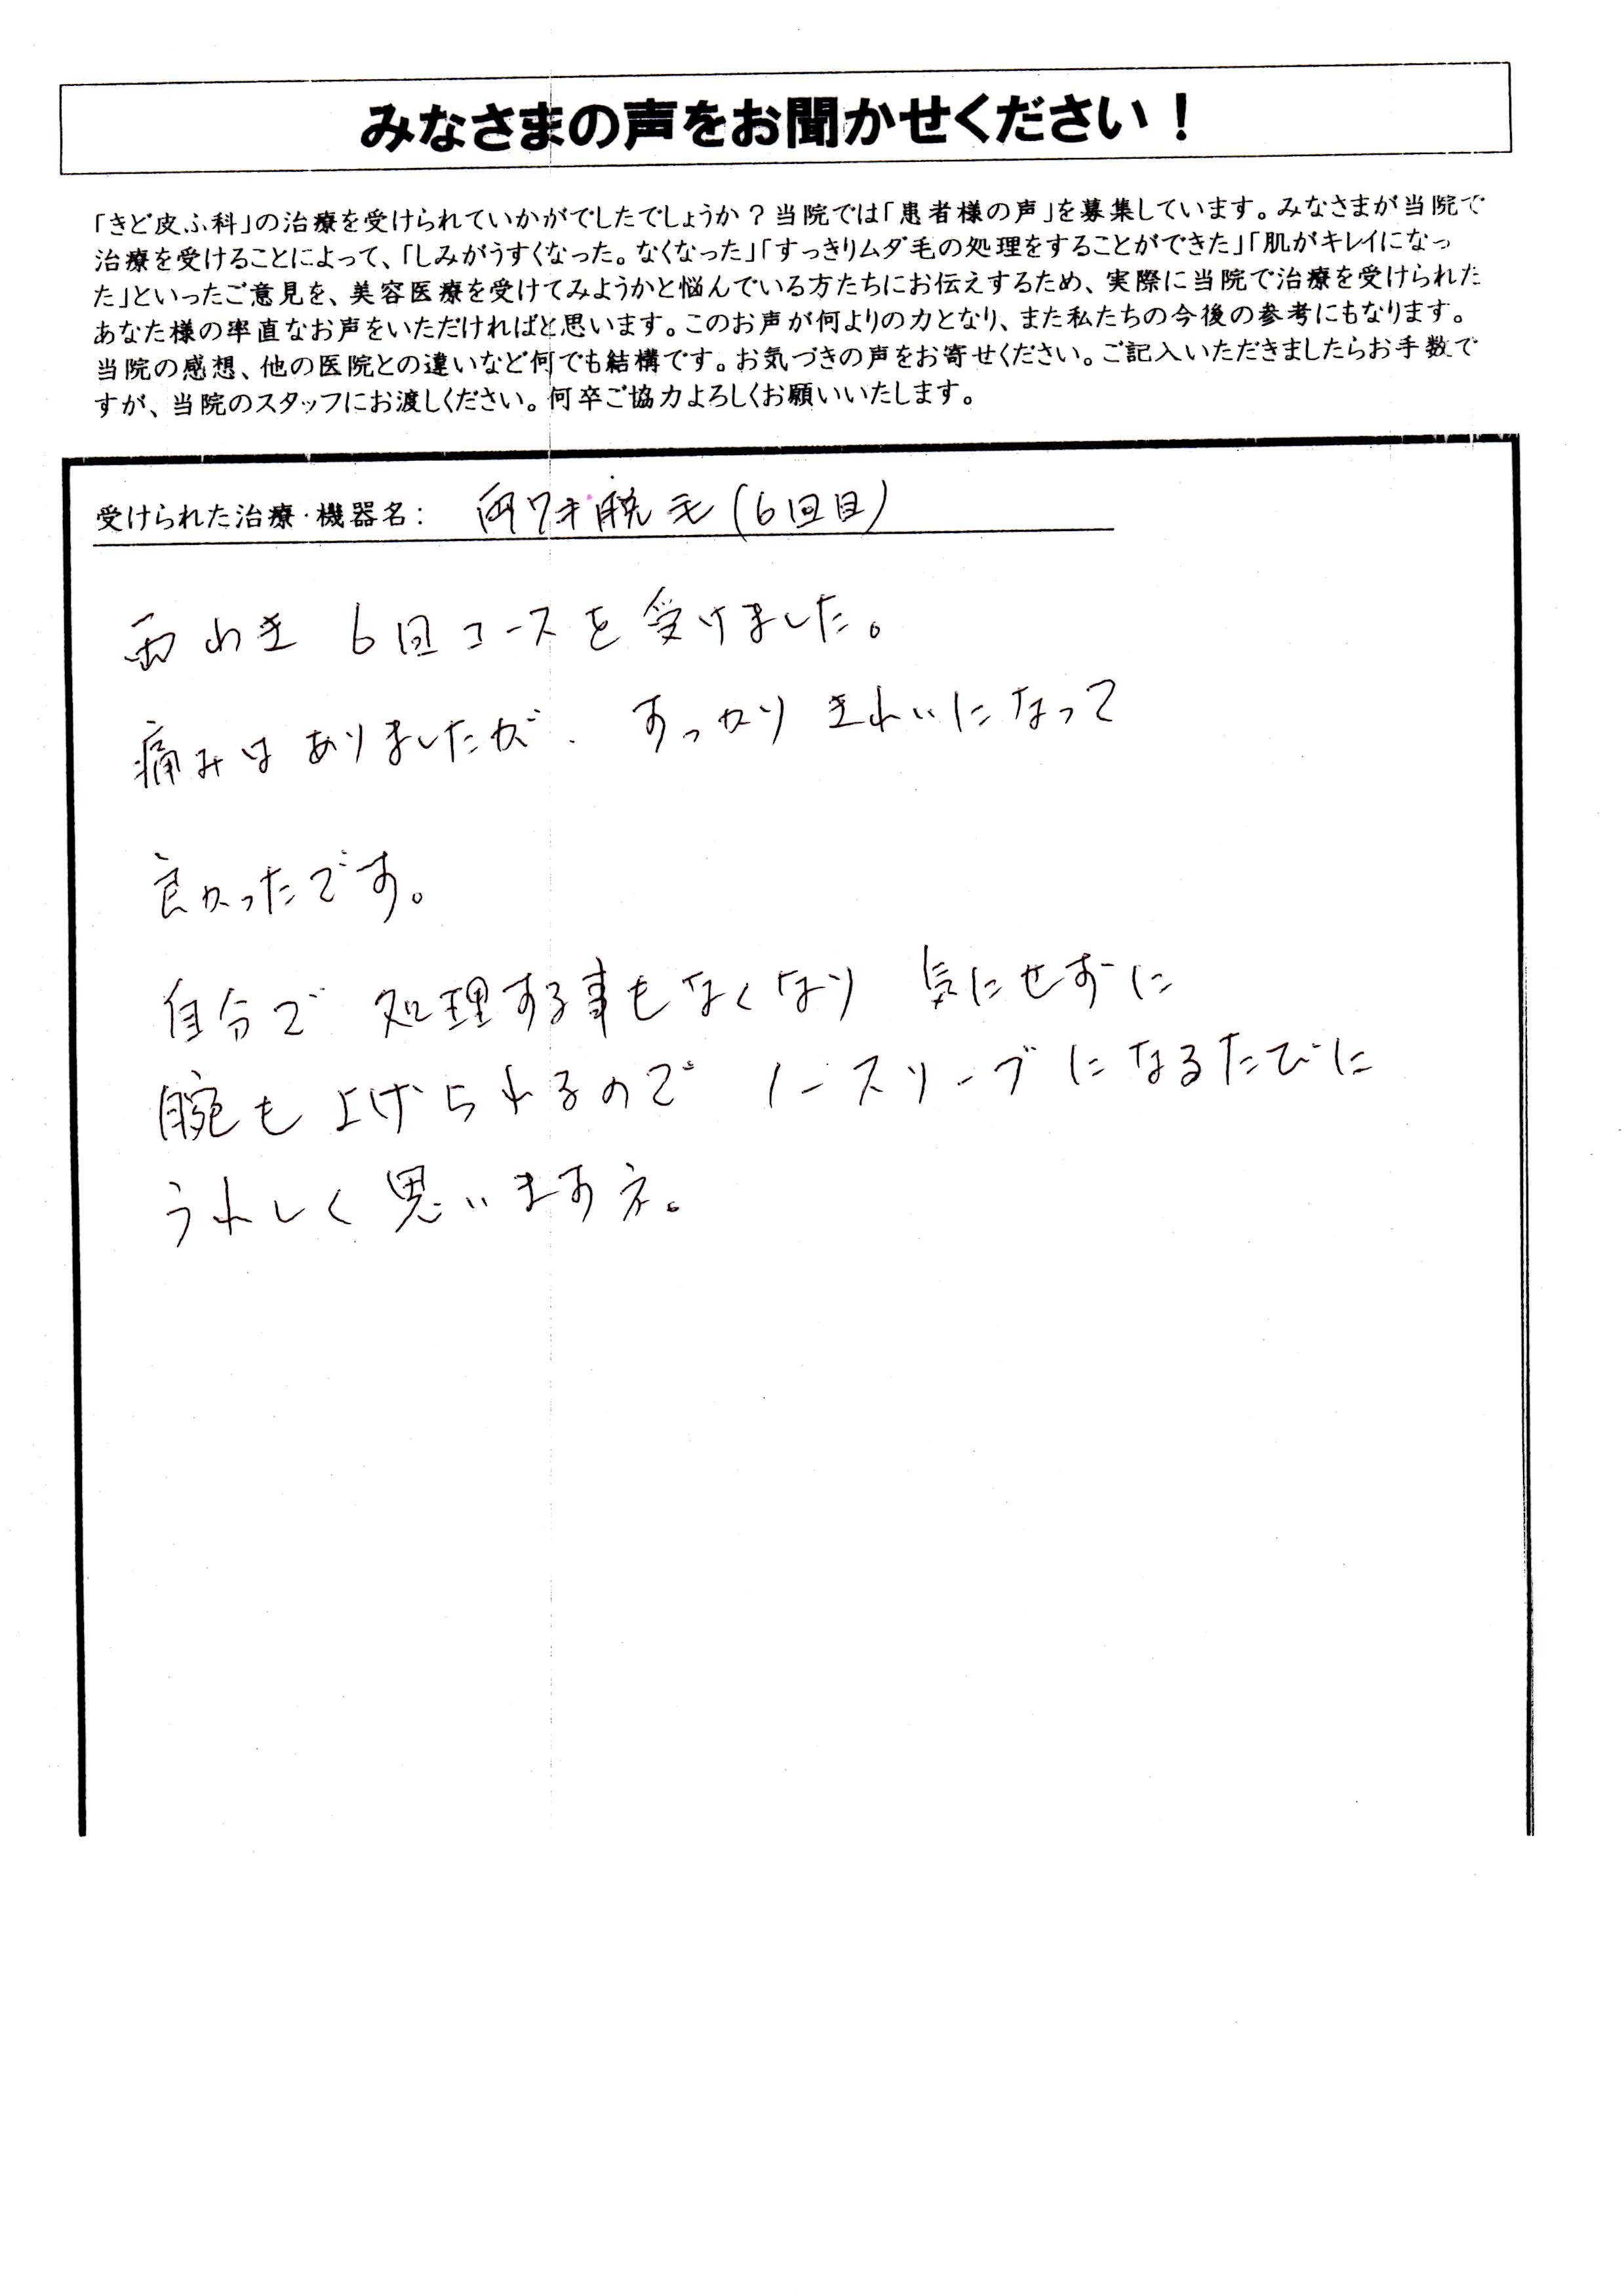 みなさまの声をお聞かせください！
「きど皮ふ科」の治療を受けられていかがでしたでしょうか？当院では「患者様の声」を募集しています。みなさまが当院で
治療を受けることによって、「しみがうすくなった。なくなった」「すっきりムダ毛の処理をすることができた」「肌がキレイになっ
た」といったご意見を、美容医療を受けてみようかと悩んでいる方たちにお伝えするため、実際に当院で治療を受けられた
あなた様の率直なお声をいただければと思います。このお声が何よりの力となり、また私たちの今後の参考にもなります。
当院の感想、他の医院との違いなど何でも結構です。お気づきの声をお寄せください。ご記入いただきましたらお手数で
すが、当院のスタッフにお渡しください。何卒ご協力よろしくお願いいたします。
受けられた治療・機器名： 両ワキ脱毛（6回目）
両わき 6回コースを受けました。
痛みはありましたが、すっかりきれいになって
良かったです。
自分で 処理する事もなくなり 気にせずに
腕も上げられるので ノースリーブになるたびに
うれしく思いますネ。